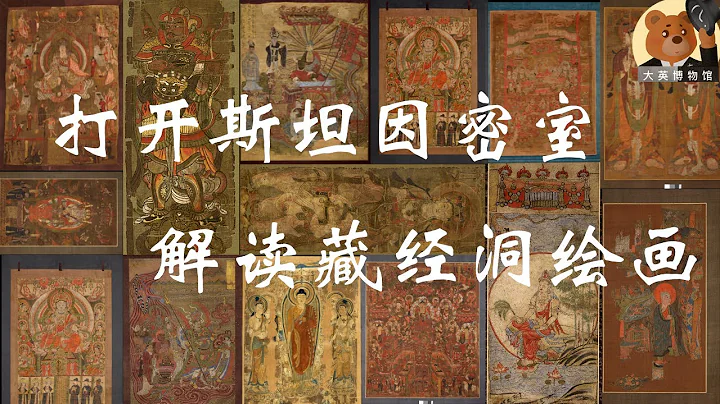 大英博物馆
打开斯坦因密室
解读藏经洞绘画